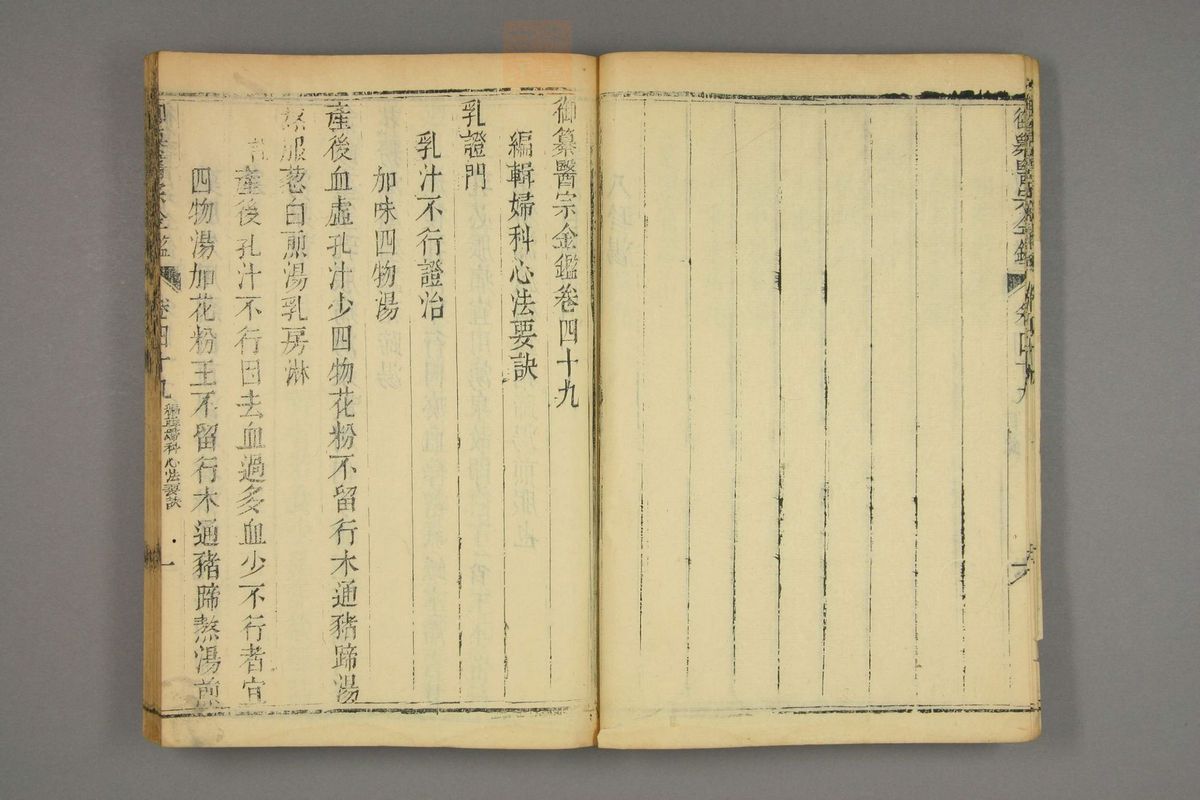 御纂醫宗金鑑
御纂醫宗金鑑卷四十九
編輯婦科心法要訣
乳證門
乳汁不行證治
加味四物湯
產後血虛乳汁少四物花粉不留行木通豬蹄湯
熬服葱白煎湯乳房淋
產後乳汁不行因去血過多血少不行者宜
四物湯加花粉王不留行木通豬蹄熬湯煎
御纂醫宗金鑑 卷四十九 編輯婦科心法要訣 一